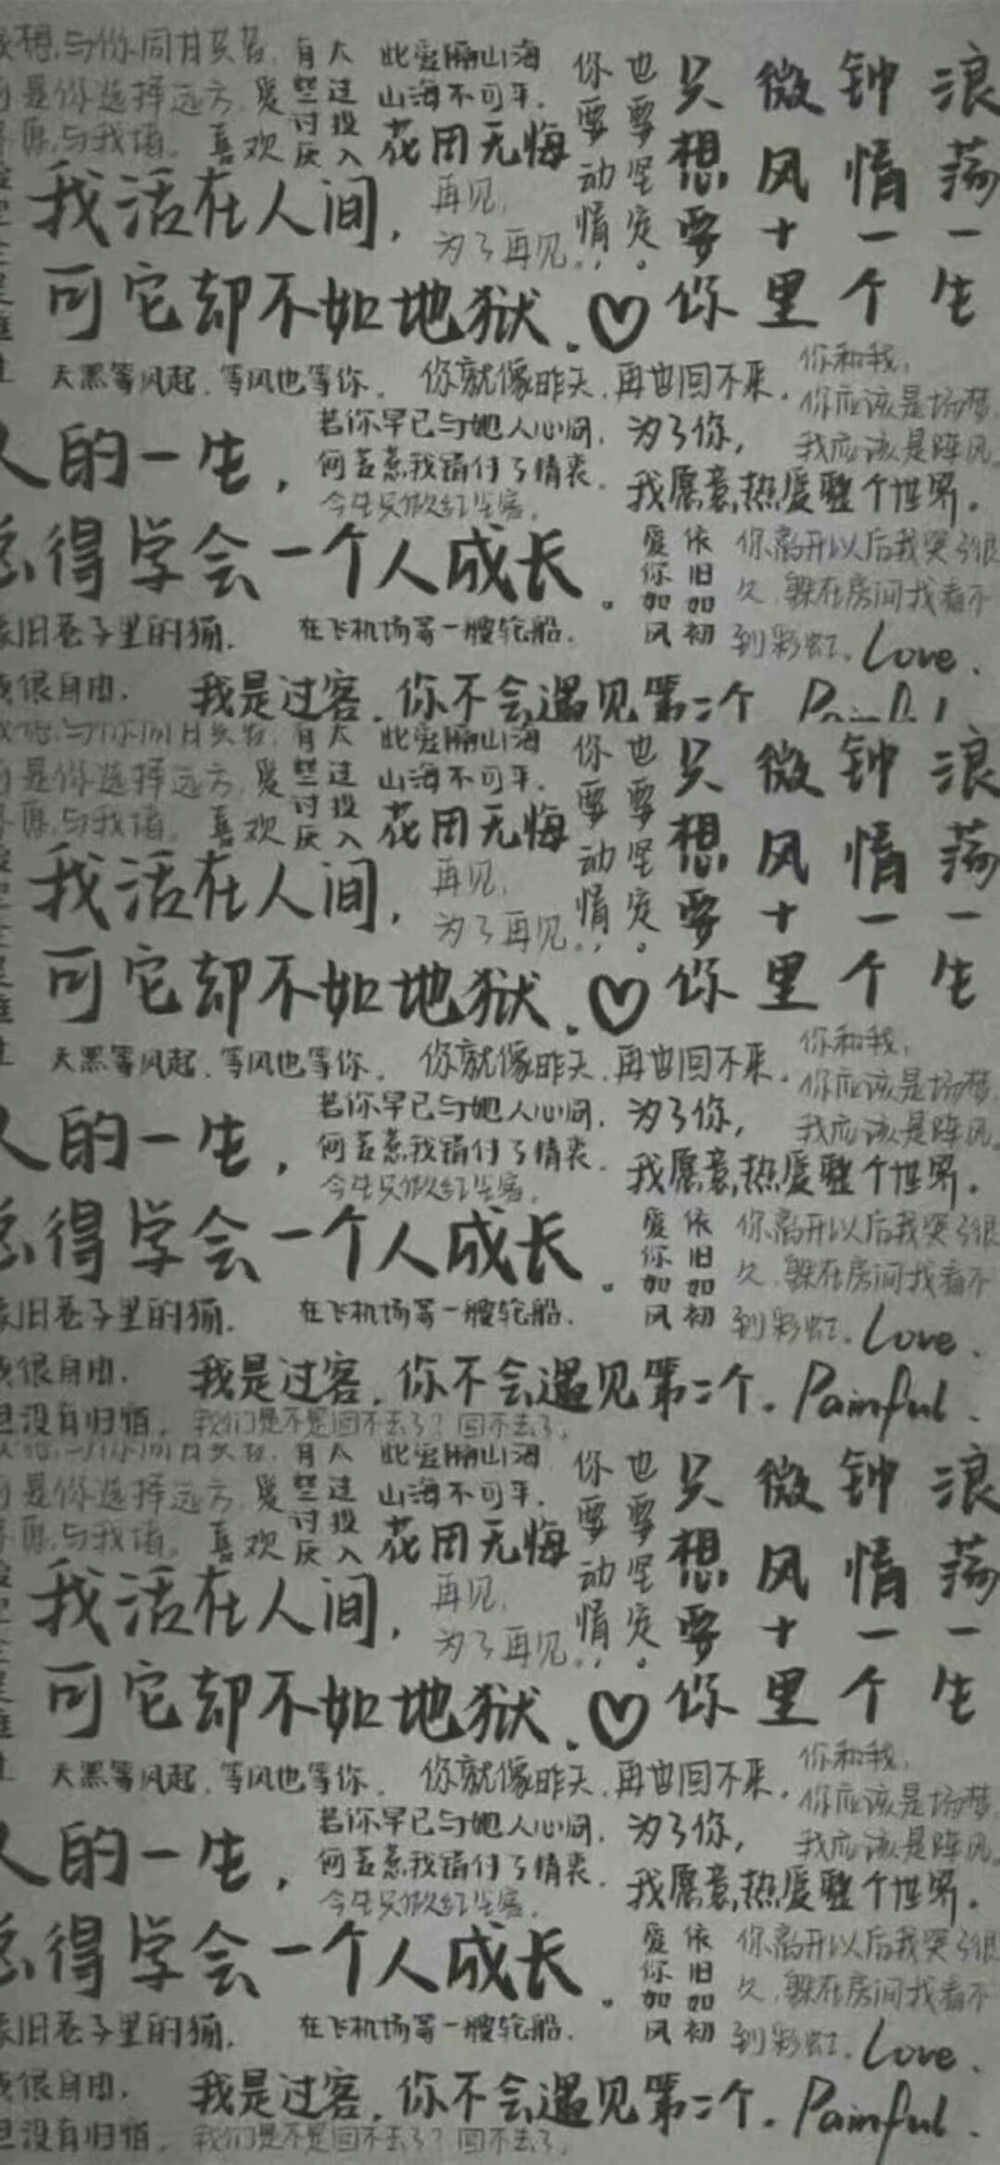 想与你同甘共苦
是你选择远方
愿与我堵。
爱
喜欢
有些讨厌
太过投入
此爱隔山海
山海不可平.
花用无悔
你要动情,
也要坚定。
只想要你
微风十里
钟情一个
浪荡一生
我活在人间,
再见,
为了再见。
可它却不如地狱.♡
天黑等风起.等风也等你.
你就像昨天,再也回不来.
你和我,
你应该是场梦
我应该是阵风
人的一生,
若你早已与她人心同,
何苦惹我错付了情衷.
今生只做红尘客.
为了你,
我愿意,热爱整个世界.
总得学会一个人成长.
爱你如风
依旧如初
你离开以后我哭了很
久,躲在房间找看不
到彩虹.
Love.
旧巷子里的猫.
在飞机场等一艘轮船.
很自由.
我是过客.你不会遇见第二个
有些讨厌
太过投入
此爱隔山海
山海不可平.
是你选择远方
愿与我堵。
爱
喜欢
花用无悔
你要动情,
也要坚定。
只想要你
微风十里
钟情一个
浪荡一生
我活在人间,
再见,
为了再见。
可它却不如地狱.♡
天黑等风起.等风也等你.
你就像昨天,再也回不来.
你和我,
你应该是场梦
我应该是阵风
人的一生,
若你早已与她人心同,
何苦惹我错付了情衷.
今生只做红尘客.
为了你,
我愿意,热爱整个世界.
总得学会一个人成长.
爱你如风
依旧如初
你离开以后我哭了很
久,躲在房间找看不
到彩虹.
Love.
旧巷子里的猫.
在飞机场等一艘轮船.
很自由.
我是过客.你不会遇见第二个.
Painful.
没有归宿.
我们是不是回不去了?回不去了.
有些讨厌
太过投入
此爱隔山海
山海不可平.
是你选择远方
愿与我堵。
爱
喜欢
花用无悔
你要动情,
也要坚定。
只想要你
微风十里
钟情一个
浪荡一生
我活在人间,
再见,
为了再见。
可它却不如地狱.♡
天黑等风起.等风也等你.
你就像昨天,再也回不来.
你和我,
你应该是场梦
我应该是阵风
人的一生,
若你早已与她人心同,
何苦惹我错付了情衷.
今生只做红尘客.
为了你,
我愿意,热爱整个世界.
总得学会一个人成长.
爱你如风
依旧如初
你离开以后我哭了很
久,躲在房间找看不
到彩虹.
Love.
旧巷子里的猫.
在飞机场等一艘轮船.
很自由.
我是过客.你不会遇见第二个.
Painful.
没有归宿.
我们是不是回不去了?回不去了.